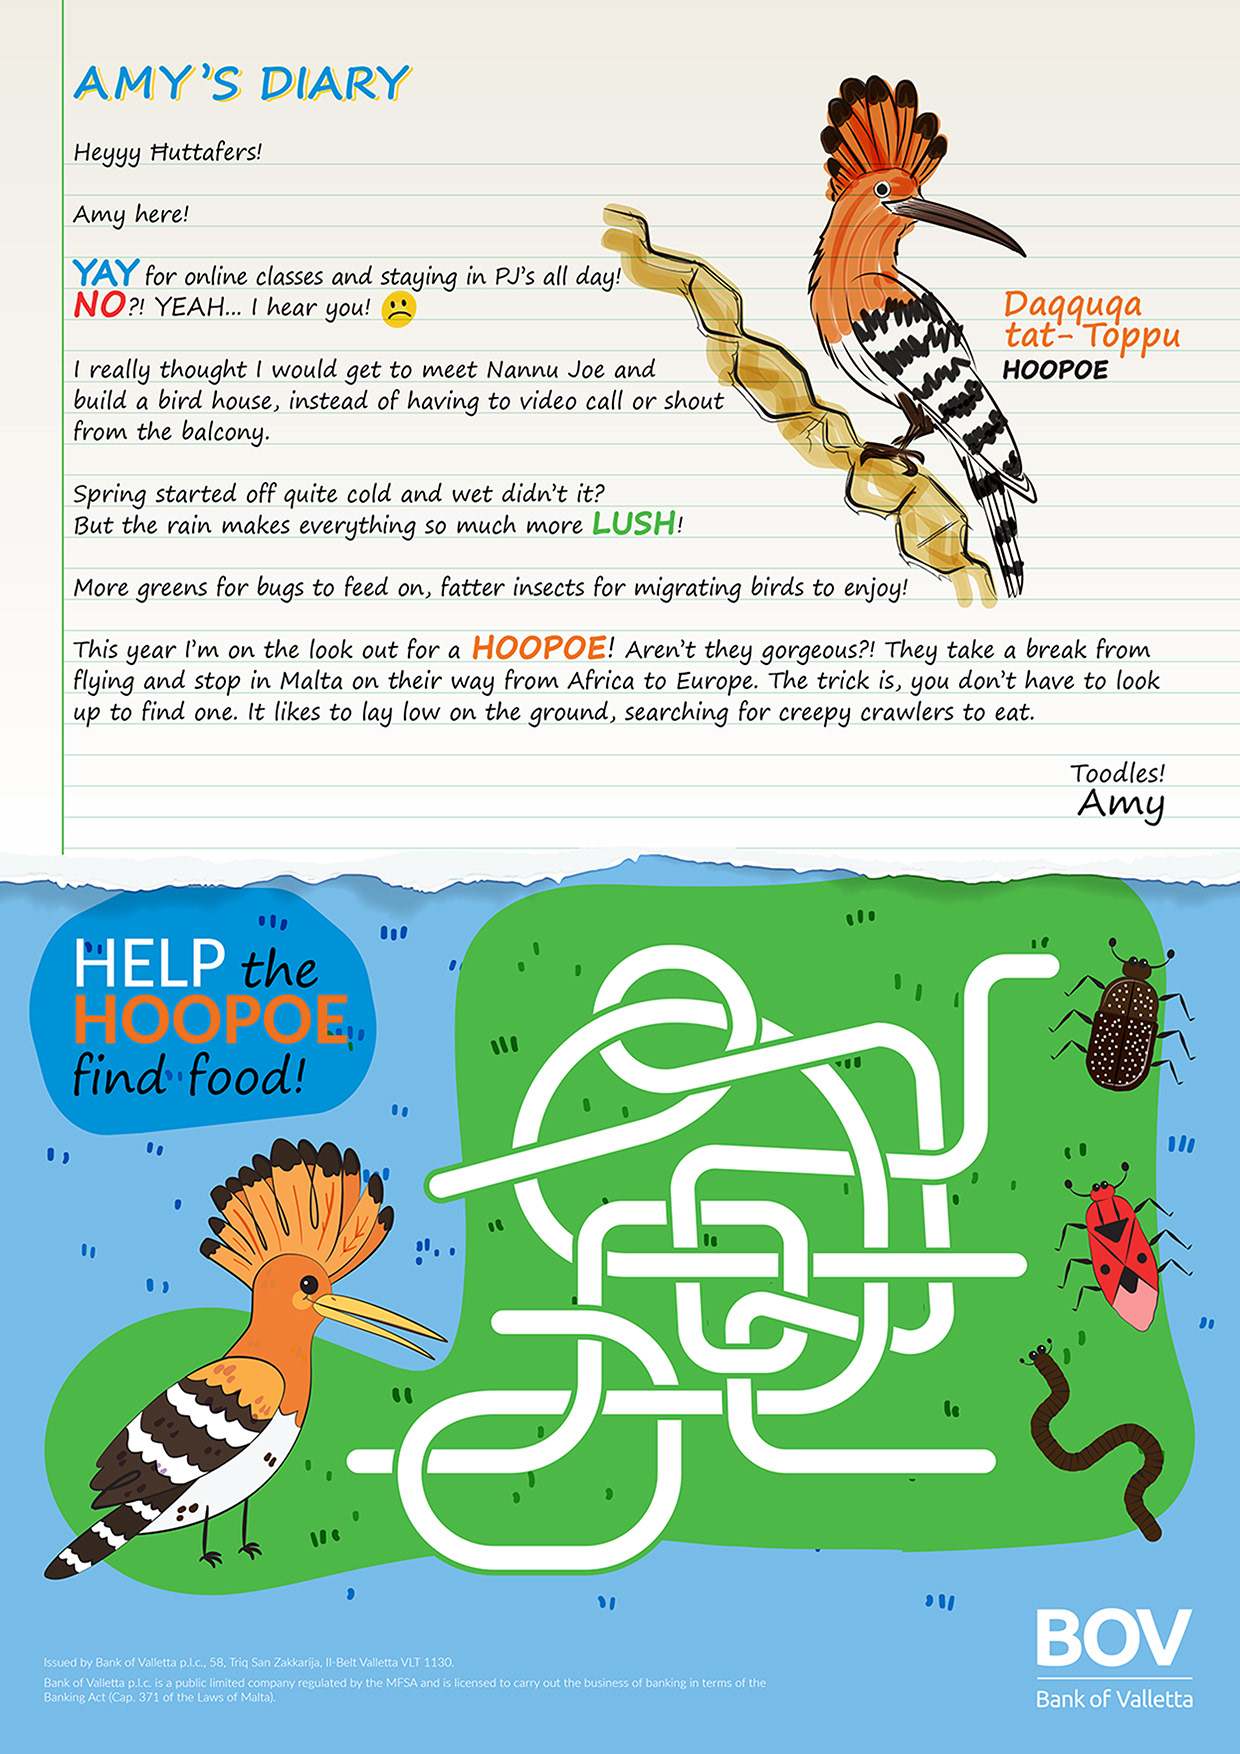 AMY'S DIARY
Heyyy Ħuttafers!
Amy here!
YAY for online classes and staying in PJ's all day!
NO?! YEAH... I hear you!
I really thought I would get to meet Nannu Joe and
build a bird house, instead of having to video call or shout
from the balcony.
Spring started off quite cold and wet didn't it?
But the rain makes everything so much more LUSH!
More greens for bugs to feed on, fatter insects for migrating birds to enjoy!
This year I'm on the look out for a HOOPOE! Aren't they gorgeous?! They take a break from
flying and stop in Malta on their way from Africa to Europe. The trick is, you don't have to look
up to find one. It likes to lay low on the ground, searching for creepy crawlers to eat.
Toodles!
Amy
Daqquqa
tat-Toppu
HOOPOE
HELP the
HOOPOE
find food!
Issued by Bank of Valletta p.l.c., 58, Triq San Zakkarija, Il-Belt Valletta VLT 1130.
Bank of Valletta p.l.c. is a public limited company regulated by the MFSA and is licensed to carry out the business of banking in terms of the
Banking Act (Cap. 371 of the Laws of Malta).
BOV
Bank of Valletta